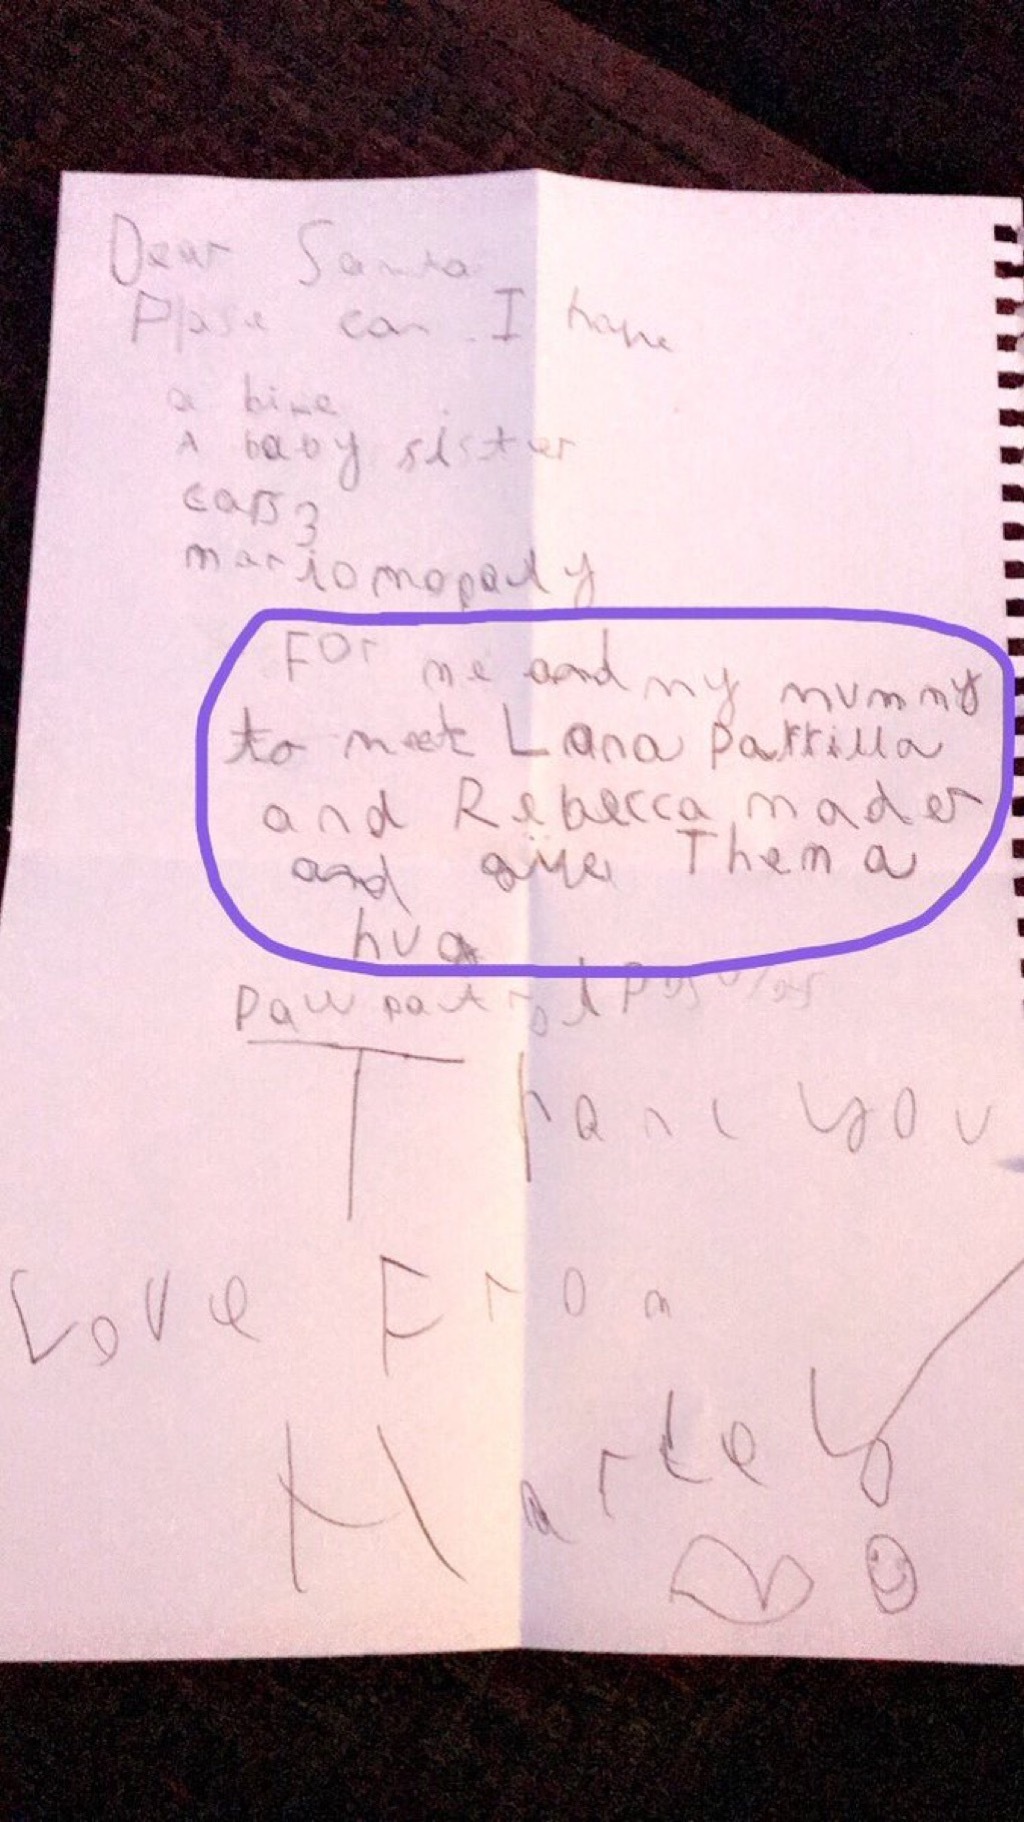 Dear Santa
Plase can I have
a bike
A baby sister
cars 3
mariomopaly
For me and my mummy
to meet Lana parrilla
and Rebecca mader
and give Them a
hug
Paw patrol
Thank you
Love From
Harley